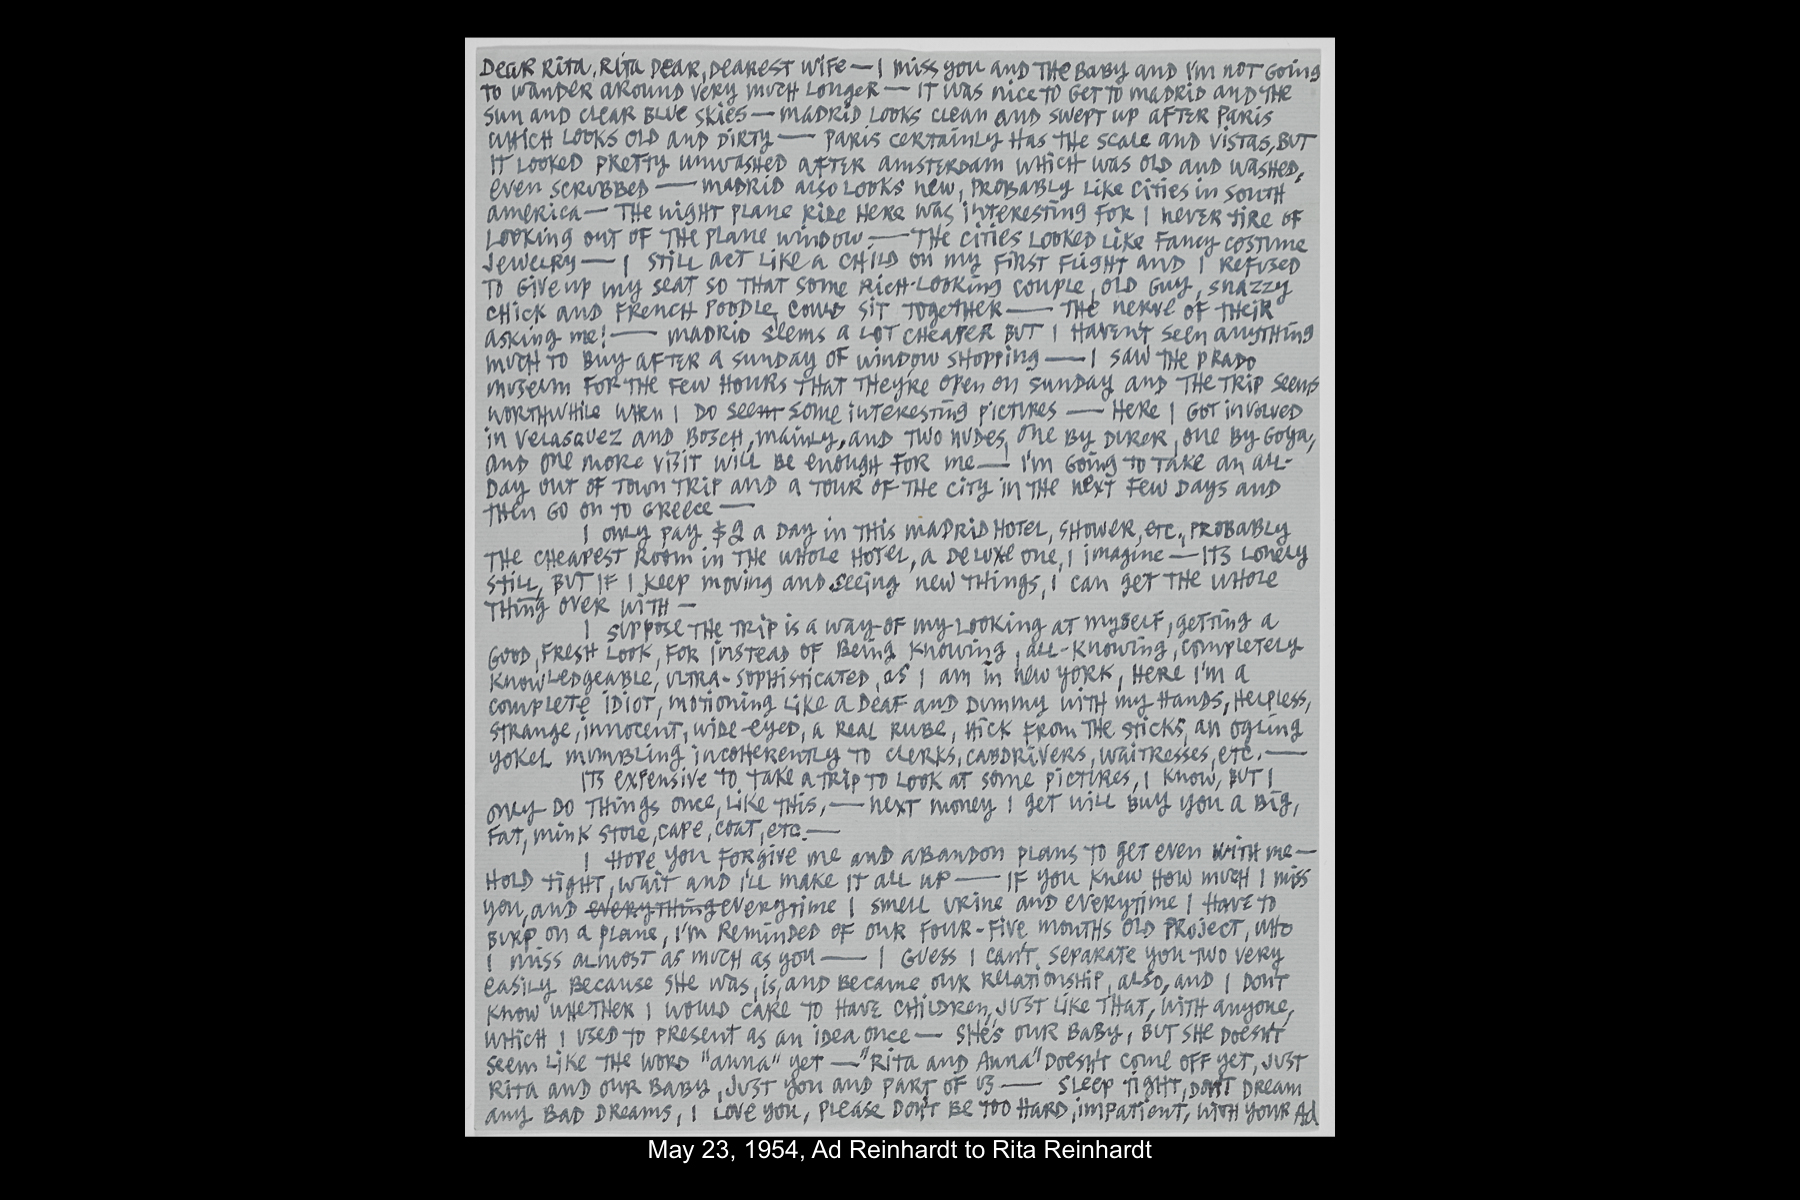 Dear Rita, Rita dear, dearest wife — I miss you and the baby and I'm not going
to wander around very much longer — it was nice to get to Madrid and the
sun and clear blue skies — Madrid looks clean and swept up after Paris
which looks old and dirty — Paris certainly has the scale and vistas, but
it looked pretty unwashed after Amsterdam which was old and washed,
even scrubbed — Madrid also looks new, probably like cities in South
America — the night plane ride here was interesting for I never tire of
looking out of the plane window — the cities looked like fancy costume
jewelry — I still act like a child on my first flight and I refused
to give up my seat so that some rich-looking couple, old guy, snazzy
chick and French poodle, could sit together — the nerve of their
asking me! — Madrid seems a lot cheaper but I haven't seen anything
much to buy after a Sunday of window shopping — I saw the Prado
Museum for the few hours that they're open on Sunday and the trip seems
worthwhile when I do see some interesting pictures — here I got involved
in Velasquez and Bosch, mainly, and two nudes, one by Durer, one by Goya,
and one more visit will be enough for me — I'm going to take an all-
day out of town trip and a tour of the city in the next few days and
then go on to Greece —
I only pay $2 a day in this Madrid hotel, shower, etc., probably
the cheapest room in the whole hotel, a de luxe one, I imagine — its lonely
still, but if I keep moving and seeing new things, I can get the whole
thing over with —
I suppose the trip is a way of my looking at myself, getting a
good, fresh look, for instead of being knowing, all-knowing, completely
knowledgeable, ultra-sophisticated, as I am in New York, here I'm a
complete idiot, motioning like a deaf and dummy with my hands, helpless,
strange, innocent, wide-eyed, a real rube, hick from the sticks, an ogling
yokel mumbling incoherently to clerks, cabdrivers, waitresses, etc. —
Its expensive to take a trip to look at some pictures, I know, but I
only do things once, like this, — next money I get will buy you a big,
fat, mink stole, cape, coat, etc. —
I hope you forgive me and abandon plans to get even with me —
hold tight, wait and I'll make it all up — if you knew how much I miss
you, and everything everytime I smell urine and everytime I have to
burp on a plane, I'm reminded of our four-five months old project, who
I miss almost as much as you — I guess I can't separate you two very
easily because she was, is, and became our relationship, also, and I don't
know whether I would care to have children, just like that, with anyone,
which I used to present as an idea once — she's our baby, but she doesn't
seem like the word "Anna" yet — "Rita and Anna" doesn't come off yet, just
Rita and our baby, just you and part of us — sleep tight, don't dream
any bad dreams, I love you, please don't be too hard, impatient, with your Ad
May 23, 1954, Ad Reinhardt to Rita Reinhardt